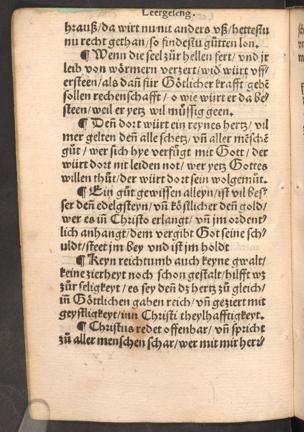 Leergeleng.
hrauß/ da wirt nu nit anders vß/ hettestu
nu recht gethan/ so findestu gůtten lon.
¶ Wenn die seel zůr hellen fert/ vnd jr
leib von wörmern verzert/ wid würt vff/
ersteen/ als dañ für Götlicher krafft gehē
sollen rechenschafft/ o wie würt er da be/
steen/ weil er yetz wil müssig geen.
¶ Deñ dort würt ein reynes hertz/ vil
mer gelten deñ alle schetz/ vñ aller mēschē
gůt/ wer sich hye verfügt mit Gott/ der
würt dort nit leiden not/ wer yetz Gottes
willen thůt/ der würt dort sein wolgemůt.
¶ Ein gůt gewissen alleyn/ ist vil bes/
ser deñ edelgsteyn/ vñ köstlicher deñ gold/
wer es iñ Christo erlangt/ vñ jm ordent/
lich anhangt/ dem vergibt Got seine sch/
uldt/ steet jm bey vnd ist jm holdt
¶ Keyn reichtumb auch keyne gwalt/
keine zierheyt noch schon gestalt/ hilfft wz
zůr seligkeyt/ es sey deñ dz hertz zů gleich/
iñ Göttlichen gaben reich/ vñ geziert mit
geystligkeyt/ inn Christi theylhafftigkeyt.
¶ Christus redet offenbar/ vñ spricht
zů aller menschen schar/ wer mit mir herr/